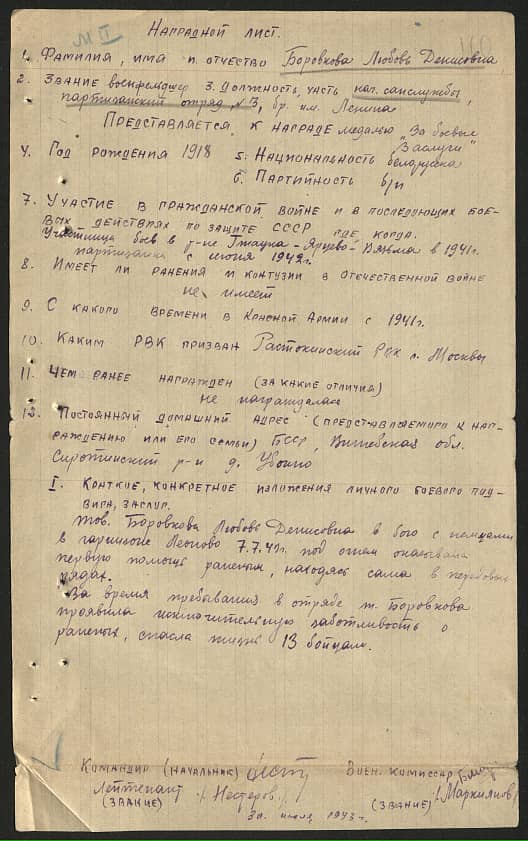 Наградной лист.
1. Фамилия, имя и отчество Боровкова Любовь Денисовна
2. Звание военфельдшер 3. Должность, часть нач. санслужбы,
партизанский отряд №3, бр. им. Ленина
Представляется к награде медалью „За боевые
заслуги"
4. Год рождения 1918 5. Национальность белорусска
6. Партийность б/п
7. Участие в гражданской войне и в последующих бое-
вых действиях по защите СССР где, когда.
Участница боев в р-не Гжатск-Ярцево-Вязьма в 1941г.
партизанка с июня 1942г.
8. Имеет ли ранения и контузии в Отечественной войне
не имеет
9. С какого времени в Красной Армии с 1941г.
10. Каким РВК призван Растокинский РВК г. Москвы
11. Чем ранее награжден (за какие отличия)
не награждалась
12. Постоянный домашний адрес (представляемого к наг-
раждению или его семьи) БССР, Витебская обл.
Сиротинский р-н д.
I. Краткие, конкретное изложения личного боевого под-
вига, заслуг.
Тов. Боровкова Любовь Денисовна в бою с немцами
в гарнизоне 7.7.42г. под огнем оказывала
первую помощь раненым, находясь сама в передовых
рядах.
За время пребывания в отряде т. Боровкова
проявила исключительную заботливость о
раненых, спасла жизнь 13 бойцам.
Командир (начальник) Воен. комиссар
Лейтенант /Нестеров/ /Маркиянов/
(звание) (звание)
30 июля 1943г.